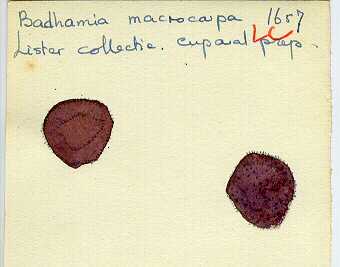 Badhamia macrocarpa 1657
LC
Lister collectie. euparal prep.